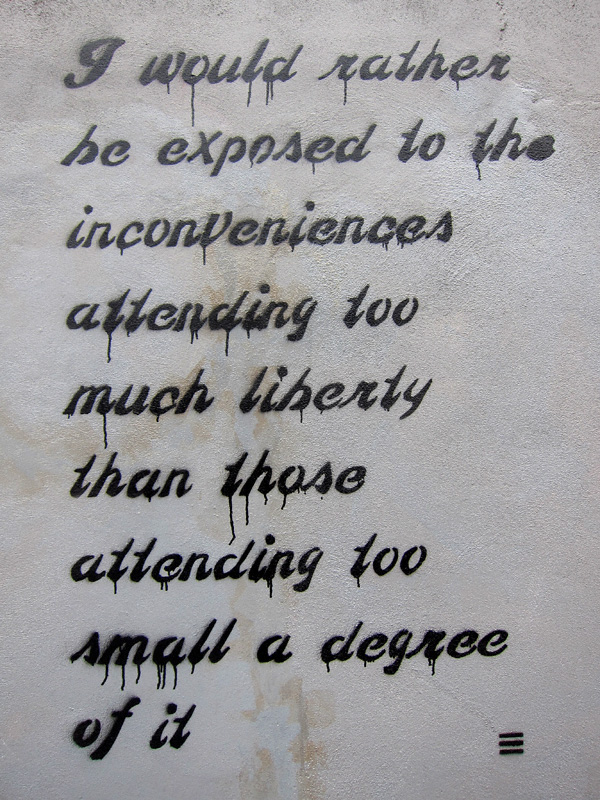 I would rather
be exposed to the
inconveniences
attending too
much liberty
than those
attending too
small a degree
of it